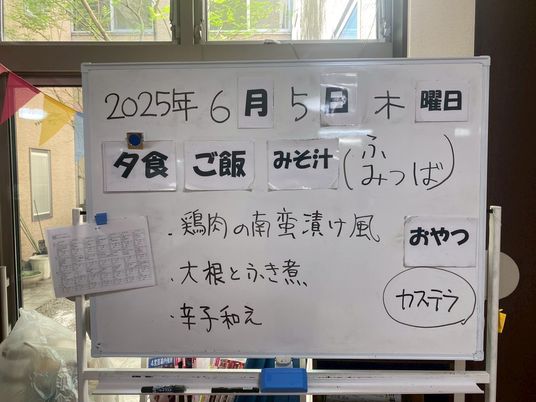 2025年 6 月 5 日 木 曜日
夕食 ご飯 みそ汁 (ふ みつば)
・鶏肉の南蛮漬け風
おやつ
・大根とふき煮
カステラ
・辛子和え